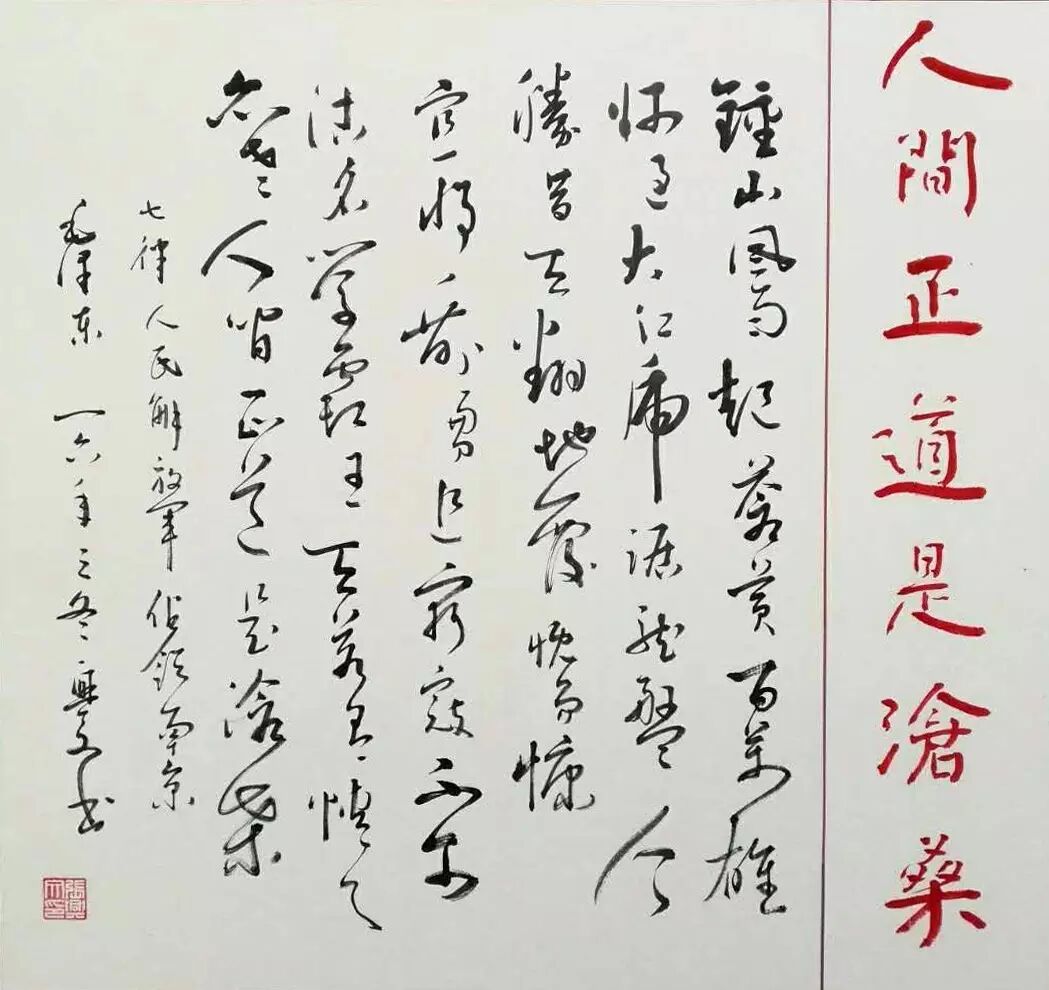 人間正道是滄桑
鍾山風雨起蒼黃百萬雄
師過大江虎踞龍盤今
勝昔天翻地覆慨而慷
宜將剩勇追窮寇不可
沽名學霸王天若有情天
亦老人間正道是滄桑
七律人民解放軍佔領南京
毛澤東 一六年之冬興文書
張興文印